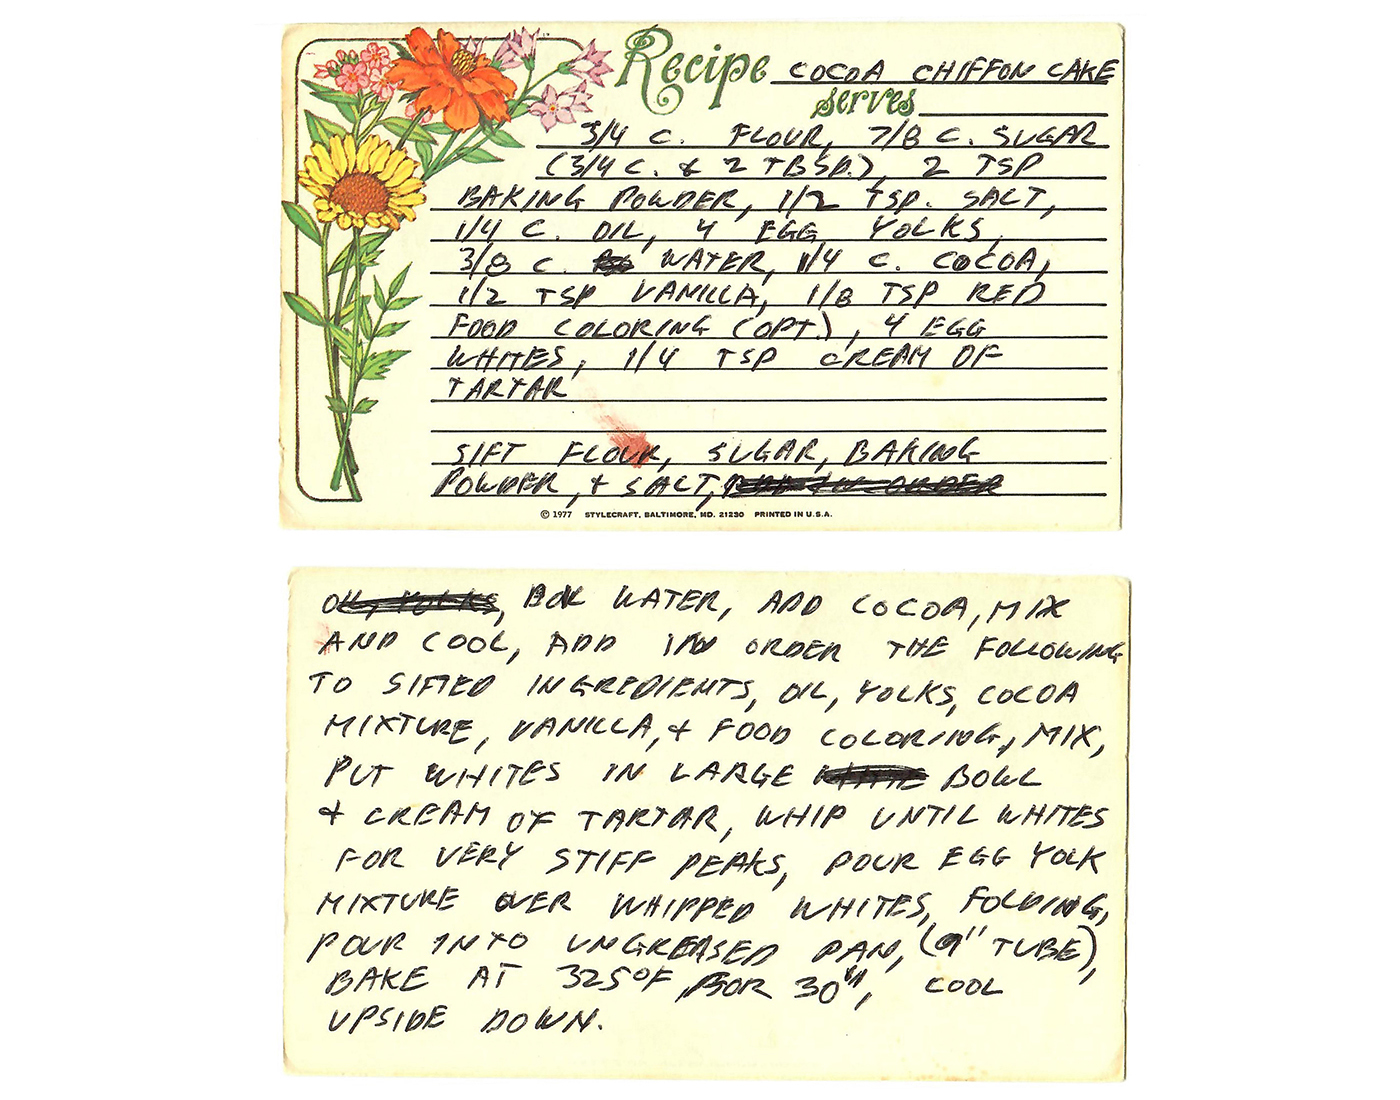 Recipe COCOA CHIFFON CAKE
serves
3/4 C. FLOUR, 7/8 C. SUGAR
(3/4 C. & 2 TBSP.), 2 TSP
BAKING POWDER, 1/2 TSP. SALT,
1/4 C. OIL, 4 EGG YOLKS,
3/8 C. WATER, 1/4 C. COCOA,
1/2 TSP VANILLA, 1/8 TSP RED
FOOD COLORING (OPT.), 4 EGG
WHITES, 1/4 TSP CREAM OF
TARTAR
SIFT FLOUR, SUGAR, BAKING
POWDER, + SALT, IN ORDER
© 1977 STYLECRAFT, BALTIMORE, MD. 21230 PRINTED IN U.S.A.
OIL, YOLKS, BOIL WATER, ADD COCOA, MIX
AND COOL, ADD IN ORDER THE FOLLOWING
TO SIFTED INGREDIENTS, OIL, YOLKS, COCOA
MIXTURE, VANILLA, & FOOD COLORING, MIX,
PUT WHITES IN LARGE BOWL
& CREAM OF TARTAR, WHIP UNTIL WHITES
FOR VERY STIFF PEAKS, POUR EGG YOLK
MIXTURE OVER WHIPPED WHITES, FOLDING,
POUR INTO UNGREASED PAN, (9" TUBE),
BAKE AT 325°F, FOR 30", COOL
UPSIDE DOWN.